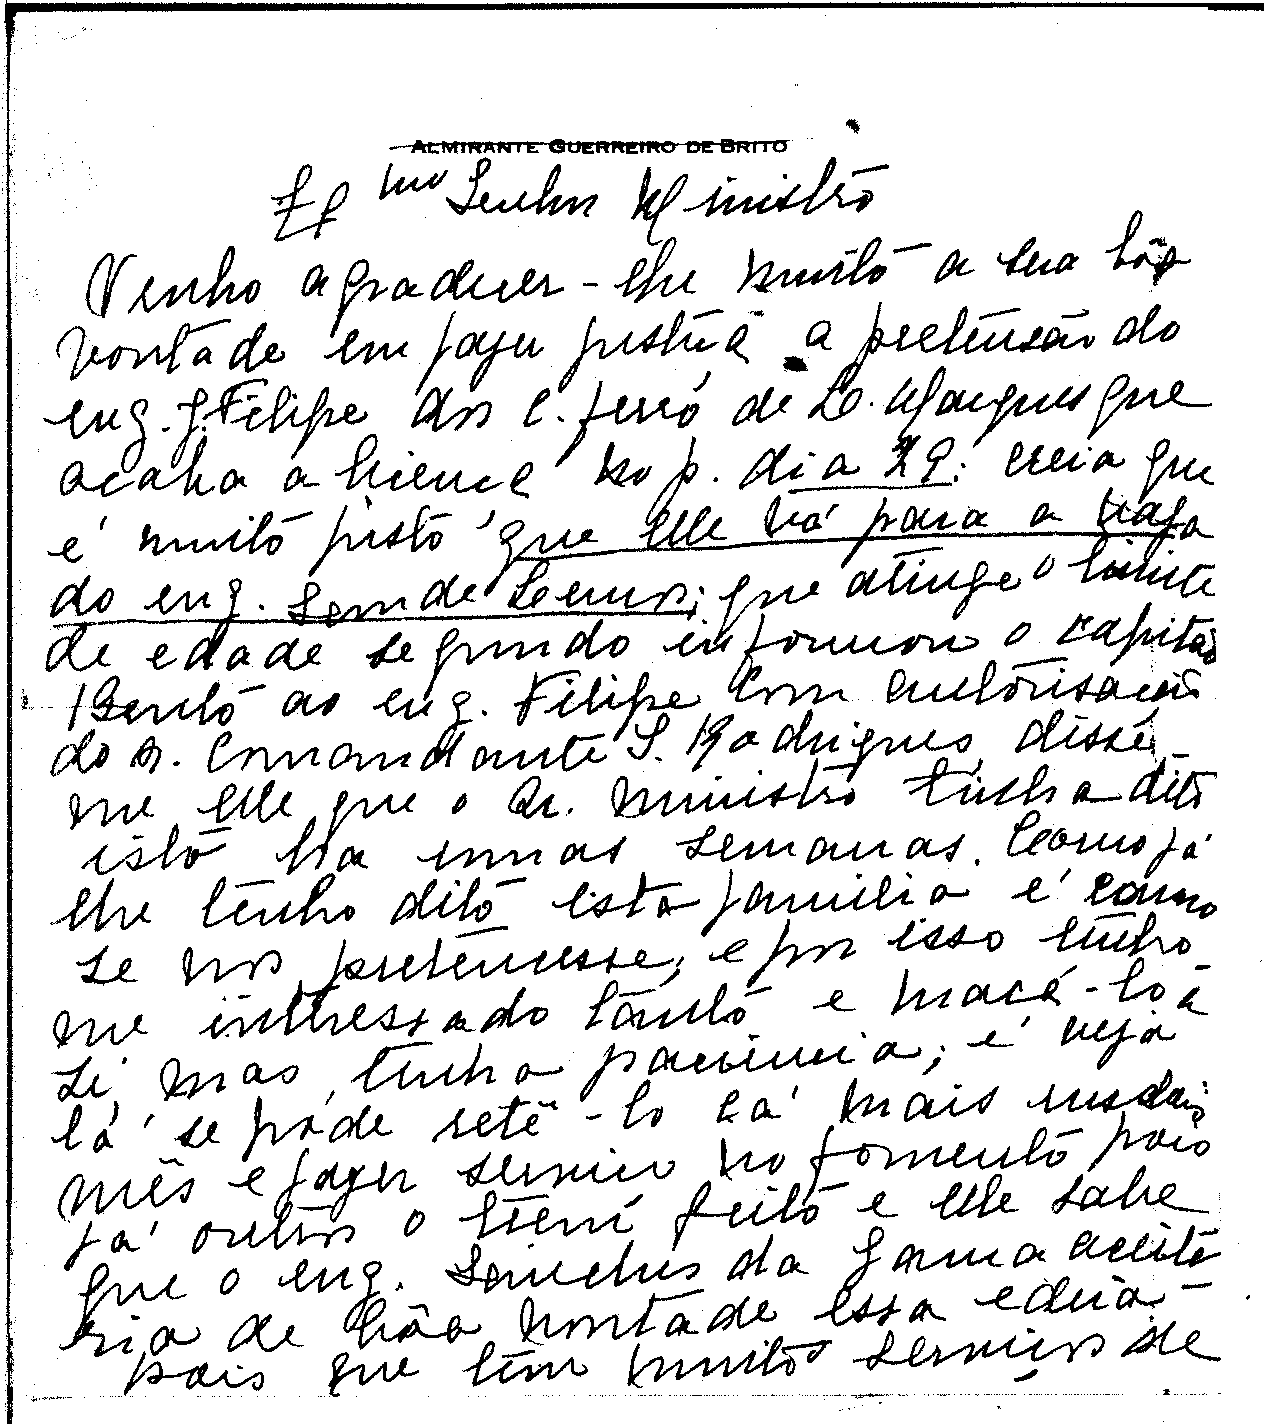 ALMIRANTE GUERREIRO DE BRITO
Exmo Senhor Ministro
Venho agradecer-lhe muito a sua bôa
vontade em fazer justiça a pretensão do
eng. J. Filipe dos C. ferro de L. Marques que
acaba a licença no p. dia 29: creia que
é muito justo que elle vá para a vaga
do eng. de Lemos; que atinge o limite
de edade segundo informou o capitão
Bento ao eng. Filipe com autorisação
do Sr. Comandante S. Rodrigues, disse
me elle que o Sr. Ministro tinha dito
isto ha umas semanas. Como já
lhe tenho dito esta familia é como
se nos pretencesse, e por isso tenho
me interessado tanto e maçá-lo a
si, mas, tenha paciencia; e veja
lá se póde retê-lo cá mais um dois
mês e fazer serviço no fomento pois
já outros o teem feito e elle sabe
que o eng. Sanches da Gama aceita
ria de bôa vontade essa
pois que tem muitos serviços de